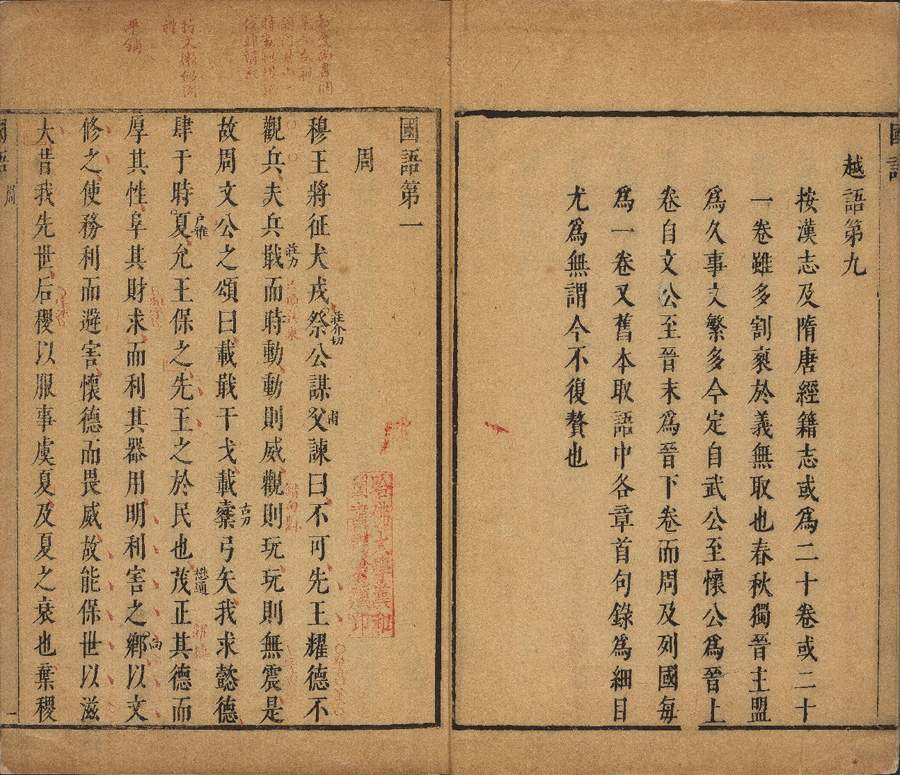 越語第九
按漢志及隋唐經籍志或爲二十卷或二十
一卷雖多割裂於義無取也春秋獨晉主盟
爲久事文繁多今定自武公至懷公爲晉上
卷自文公至晉末爲晉下卷而周及列國每
爲一卷又舊本取語中各章首句錄爲細目
尤爲無謂今不復贅也
國語第一
周
穆王將征犬戎祭公謀父諫曰不可先王耀德不
莊介切
甫
觀兵夫兵戢而時動動則威觀則玩玩則無震是
莊力
故周文公之頌曰載戢干戈載櫜弓矢我求懿德
古刀
肆于時夏允王保之先王之於民也茂正其德而
戶雅
懋通
厚其性阜其財求而利其器用明利害之鄉以文
向
修之使務利而避害懷德而畏威故能保世以滋
大昔我先世后稷以服事虞夏及夏之衰也棄稷
國語
周
一
哈佛大學漢和圖書館珍藏印